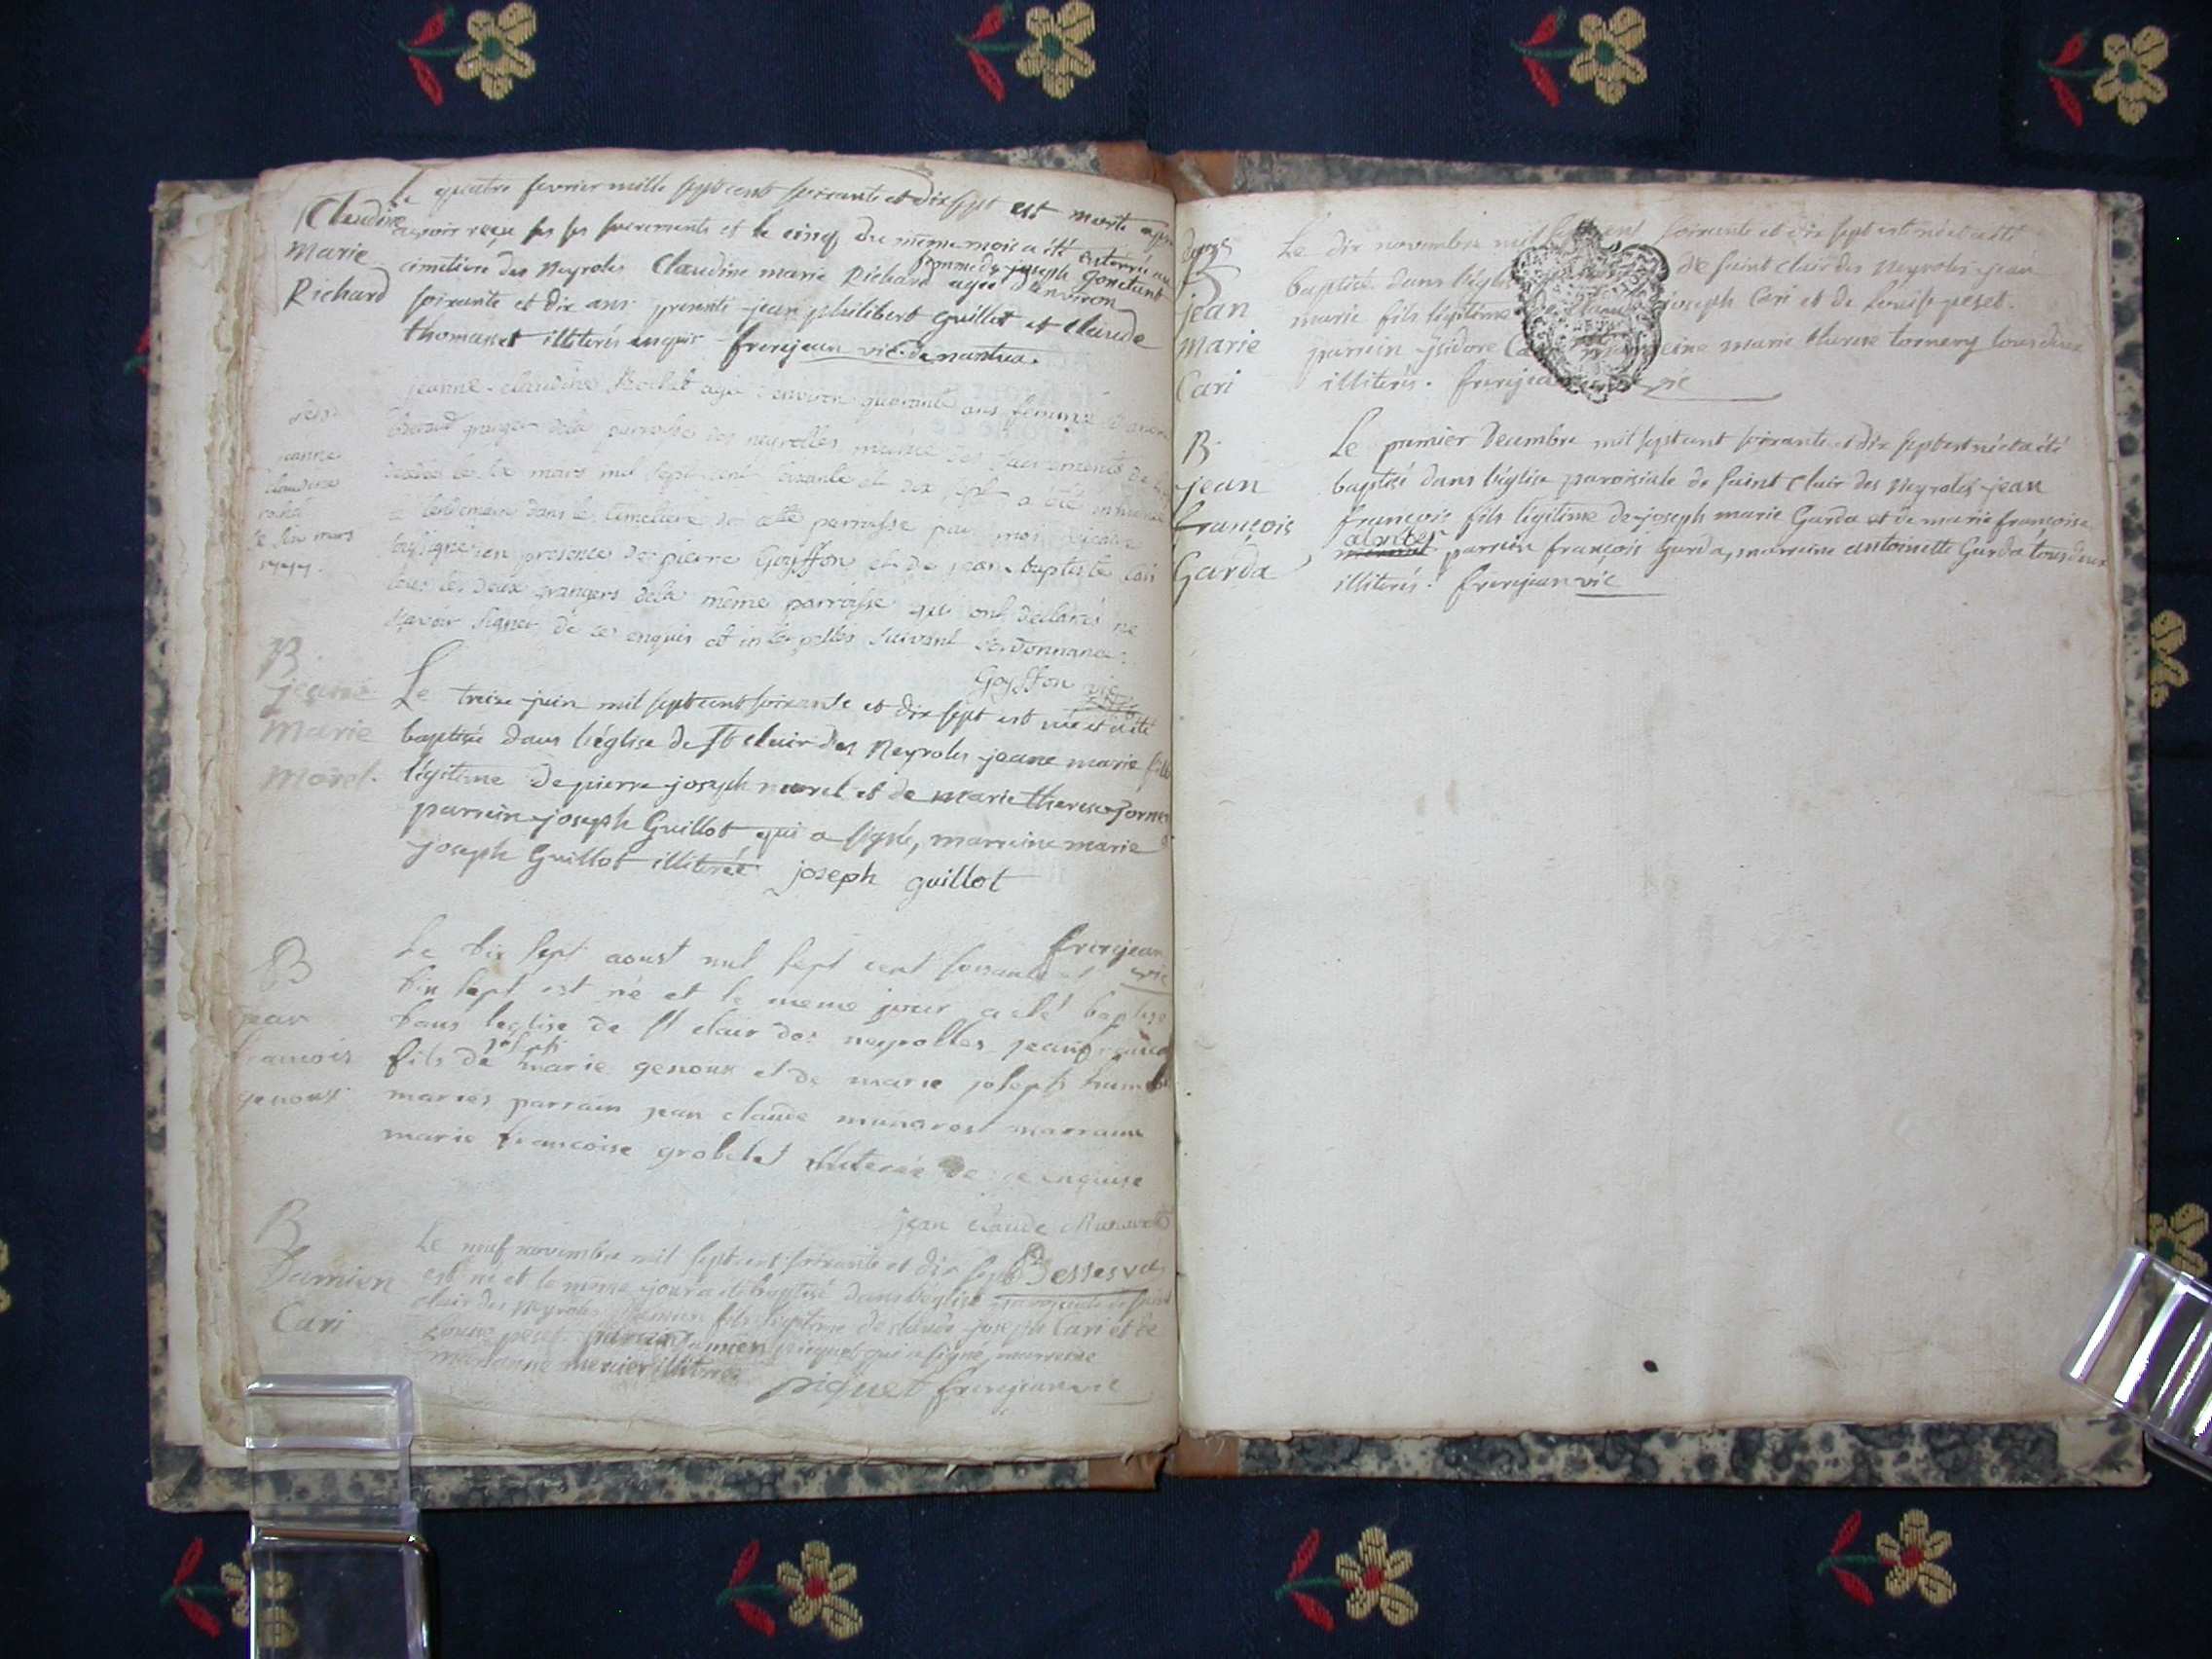 Claudine
Marie
Richard
Le quatre fevrier mille sept cent soixante et dix sept est morte apres
avoir reçu ses sacrements et le cinq du meme mois a été enterrée au
femme de joseph
cimetiere des Neyroles Claudine marie Richard agée d'environ
soixante et dix ans presents jean philibert Guillot et claude
thomasset illiterés enquis frerejean vic. de nantua.
jeanne
claudine
le six mars
1777.
jeanne claudine agée d'environ quarante ans femme
granger de la parroisse des neyrolles, munie des sacrements de
mars mil sept cent soixante et dix sept a été inhumée
le lendemain dans le cimetiere de cette parroisse par moi vicaire
soussigné en presence de pierre Goyffon et de jean baptiste Cari
tous les deux grangers de la même parroisse qui ont déclarés ne
sçavoir signer de ce enquis et interpellés suivant l'ordonnance.
Goyffon vic
B
jeane
Marie
Morel.
Le treize juin mil sept cent soixante et dix sept est née et a été
baptisée dans l'église de St clair des Neyroles jeane marie fille
légitime de pierre joseph morel et de marie therese
parrein joseph Guillot qui a signé, marreine marie
joseph Guillot illiterée joseph guillot
frerejean
vic
B
jean
francois
genoux
Le dix sept aoust mil sept cent soixante et
dix sept est né et le meme jour a eté baptisé
dans leglise de St clair des neyrolles jean francois
joseph
fils de marie genoux et de marie joseph
mariés parrain jean claude marraine
marie francoise grobelet illiterée de ce enquise
jean claude
B
Damien
Cari
Le neuf novembre mil sept cent soixante et dix sept
est né et le meme jour a eté baptisé dans l'église paroissiale de saint
clair des Neyroles Damien fils légitime de claude joseph Cari et de
Louise peset parrein Damien piquet qui a signé, marreine
marianne mercier illiterée
piquet frerejean vic
B
jean
Marie
Cari
Le dix novembre mil sept cent soixante et dix sept est né et a été
baptisé dans l'église de saint clair des Neyroles jean
marie fils légitime de claude joseph Cari et de Louise peset.
parrein ysidore Cari marreine marie therese tornery tous deux
illiterés. frerejean vic
B
jean
françois
Garda
Le premier decembre mil sept cent soixante et dix sept est né et a été
baptisé dans l'église paroissiale de saint clair des Neyroles jean
françois fils légitime de joseph marie Garda et de marie françoise
parrein françois Garda, marreine antoinette Garda tous deux
illiterés. frerejean vic